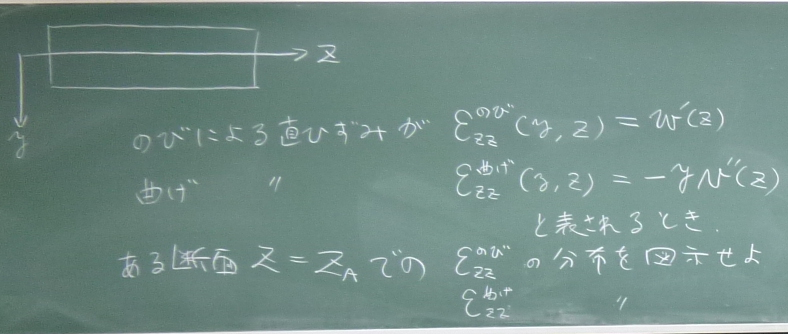 z
y
のびによる直ひずみが ε_zz^のび (y, z) = w'(z)
曲げ 〃 ε_zz^曲げ (y, z) = -y v''(z)
と表されるとき.
ある断面 z = z_A での ε_zz^のび の分布を図示せよ
ε_zz^曲げ 〃